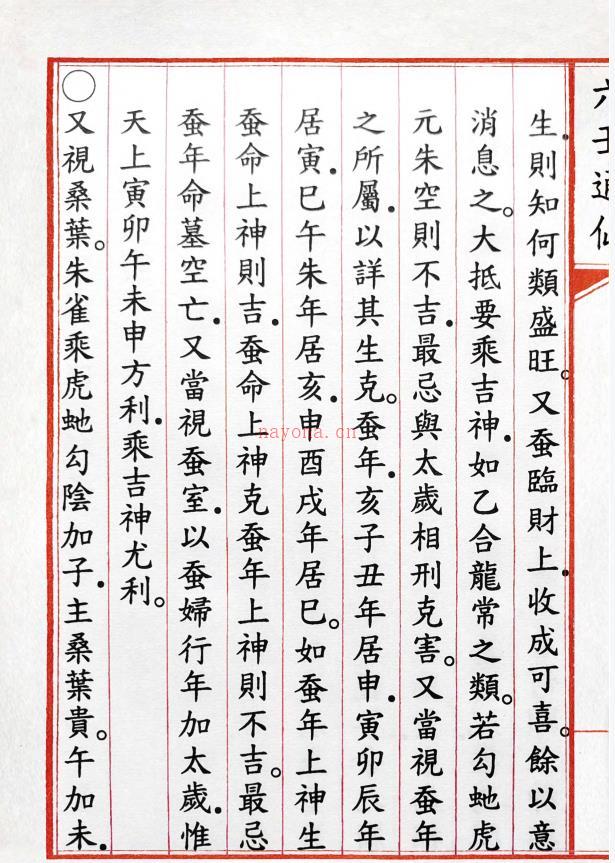 六壬通仙
生則知何類盛旺。又蚕臨財上。收成可喜。餘以意
消息之。大抵要乘吉神。如乙合龍常之類。若勾虵虎
元朱空則不吉。最忌與太歲相刑克害。又當視蚕年
之所屬。以詳其生克。蚕年。亥子丑年居申。寅卯辰年
居寅。巳午朱年居亥。申酉戌年居巳。如蚕年上神生
蚕命上神則吉。蚕命上神克蚕年上神則不吉。最忌
蚕年命墓空亡。又當視蚕室。以蚕婦行年加太歲。惟
天上寅卯午未申方利。乘吉神尤利。
〇又視桑葉。朱雀乘虎虵勾陰加子。主桑葉貴。午加未。
nayona.cn